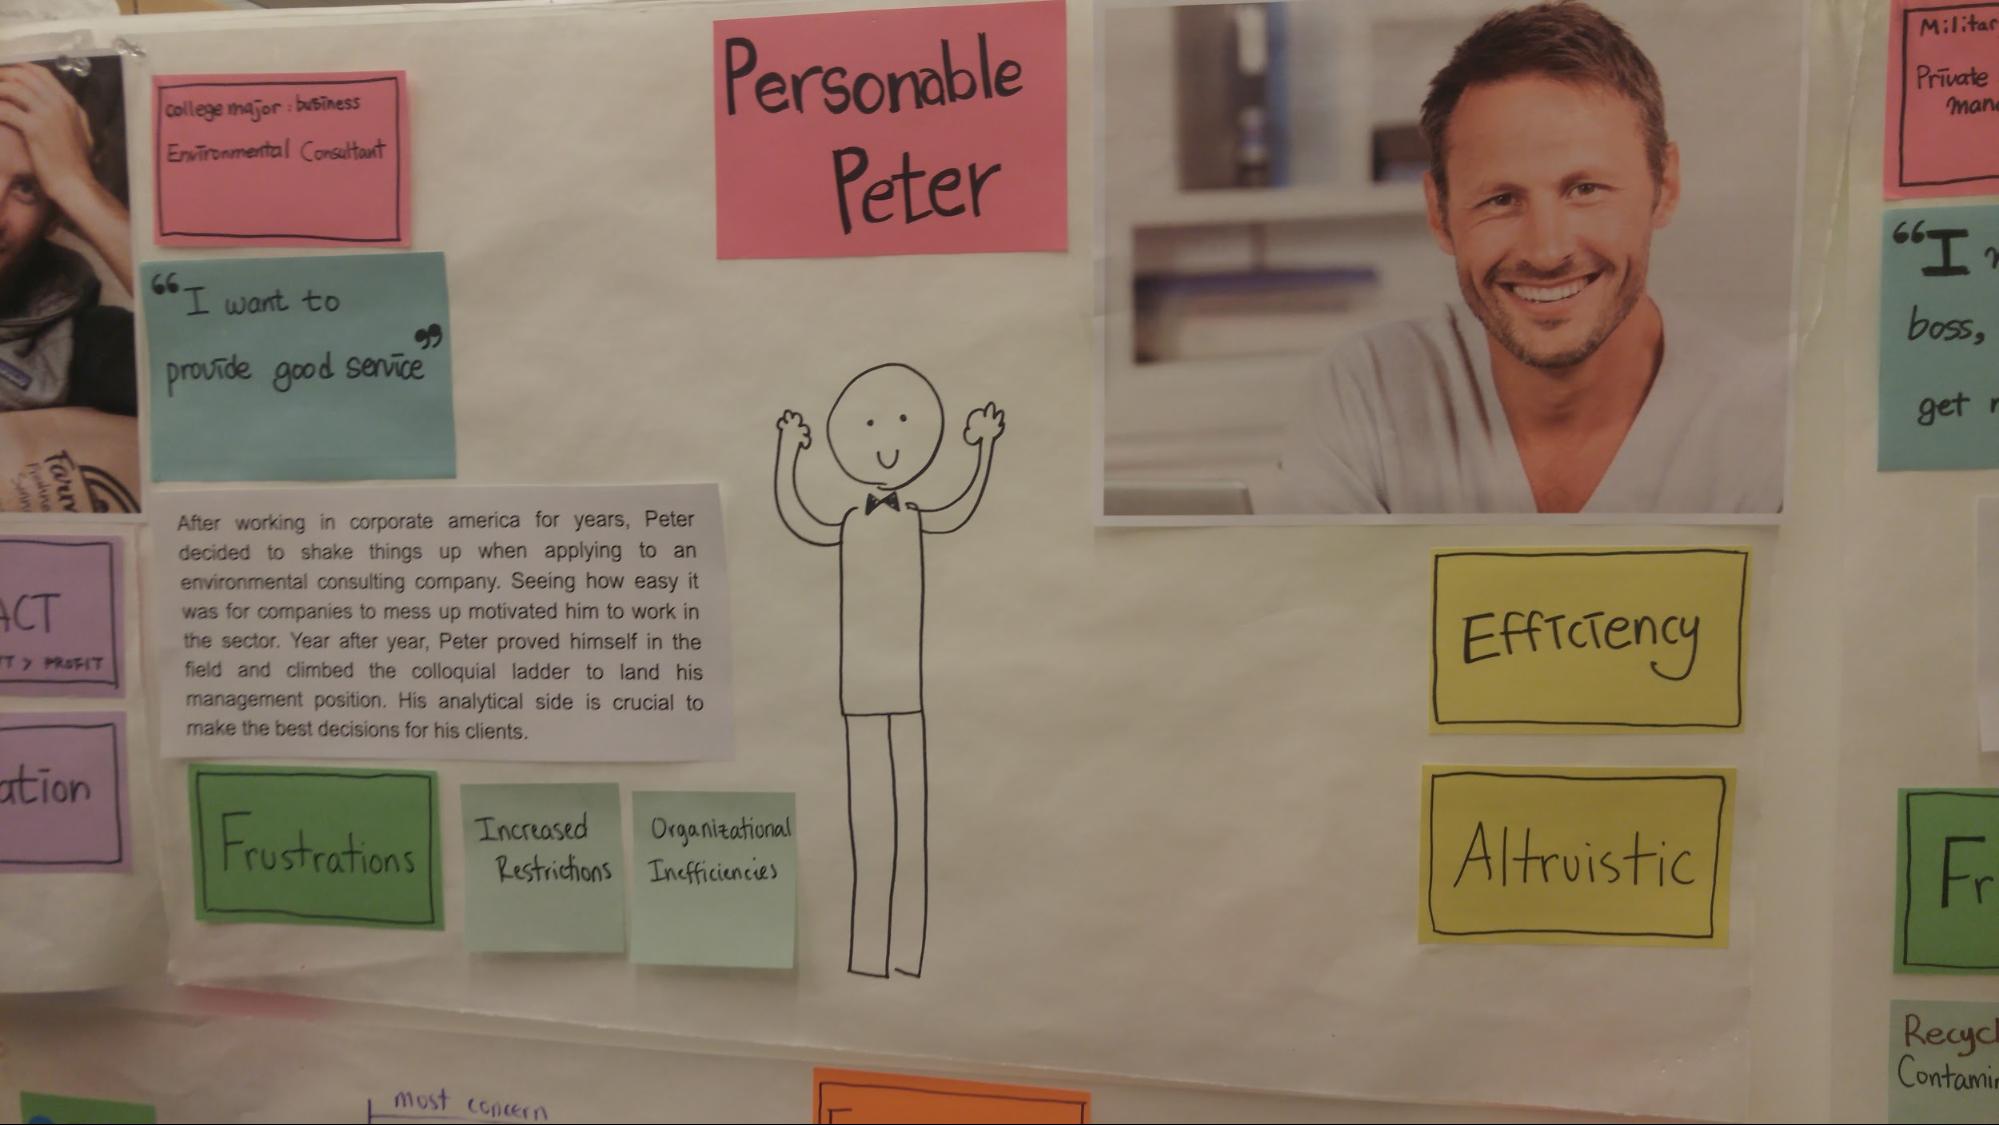 College major : business
Environmental Consultant
“I want to
provide good service”
Personable
Peter
After working in corporate america for years, Peter
decided to shake things up when applying to an
environmental consulting company. Seeing how easy it
was for companies to mess up motivated him to work in
the sector. Year after year, Peter proved himself in the
field and climbed the colloquial ladder to land his
management position. His analytical side is crucial to
make the best decisions for his clients.
Frustrations
Increased
Restrictions
Organizational
Inefficiencies
Efficiency
Altruistic
ACT
> PROFIT
ation
Farm
Private
“I
boss,
get
Fr
most concern